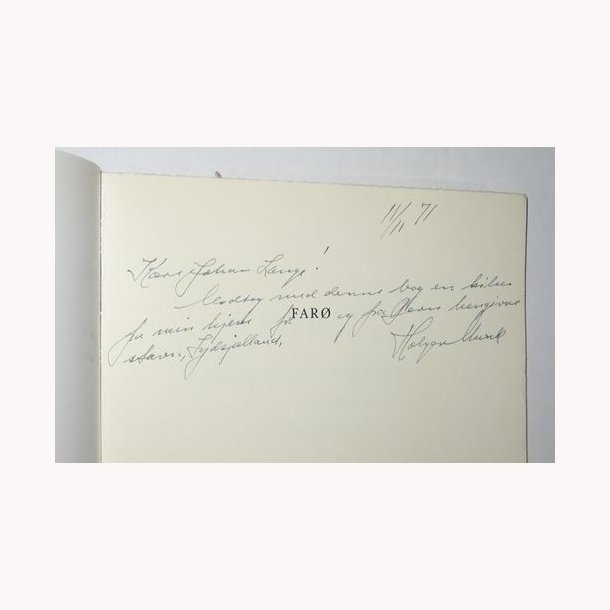 11/11 71
Kære Johan Lange!
Modtag med denne bog en hilsen
FARØ
fra min hjem og fra Deres hengivne
stavn, Sydsjælland, Holger Munk